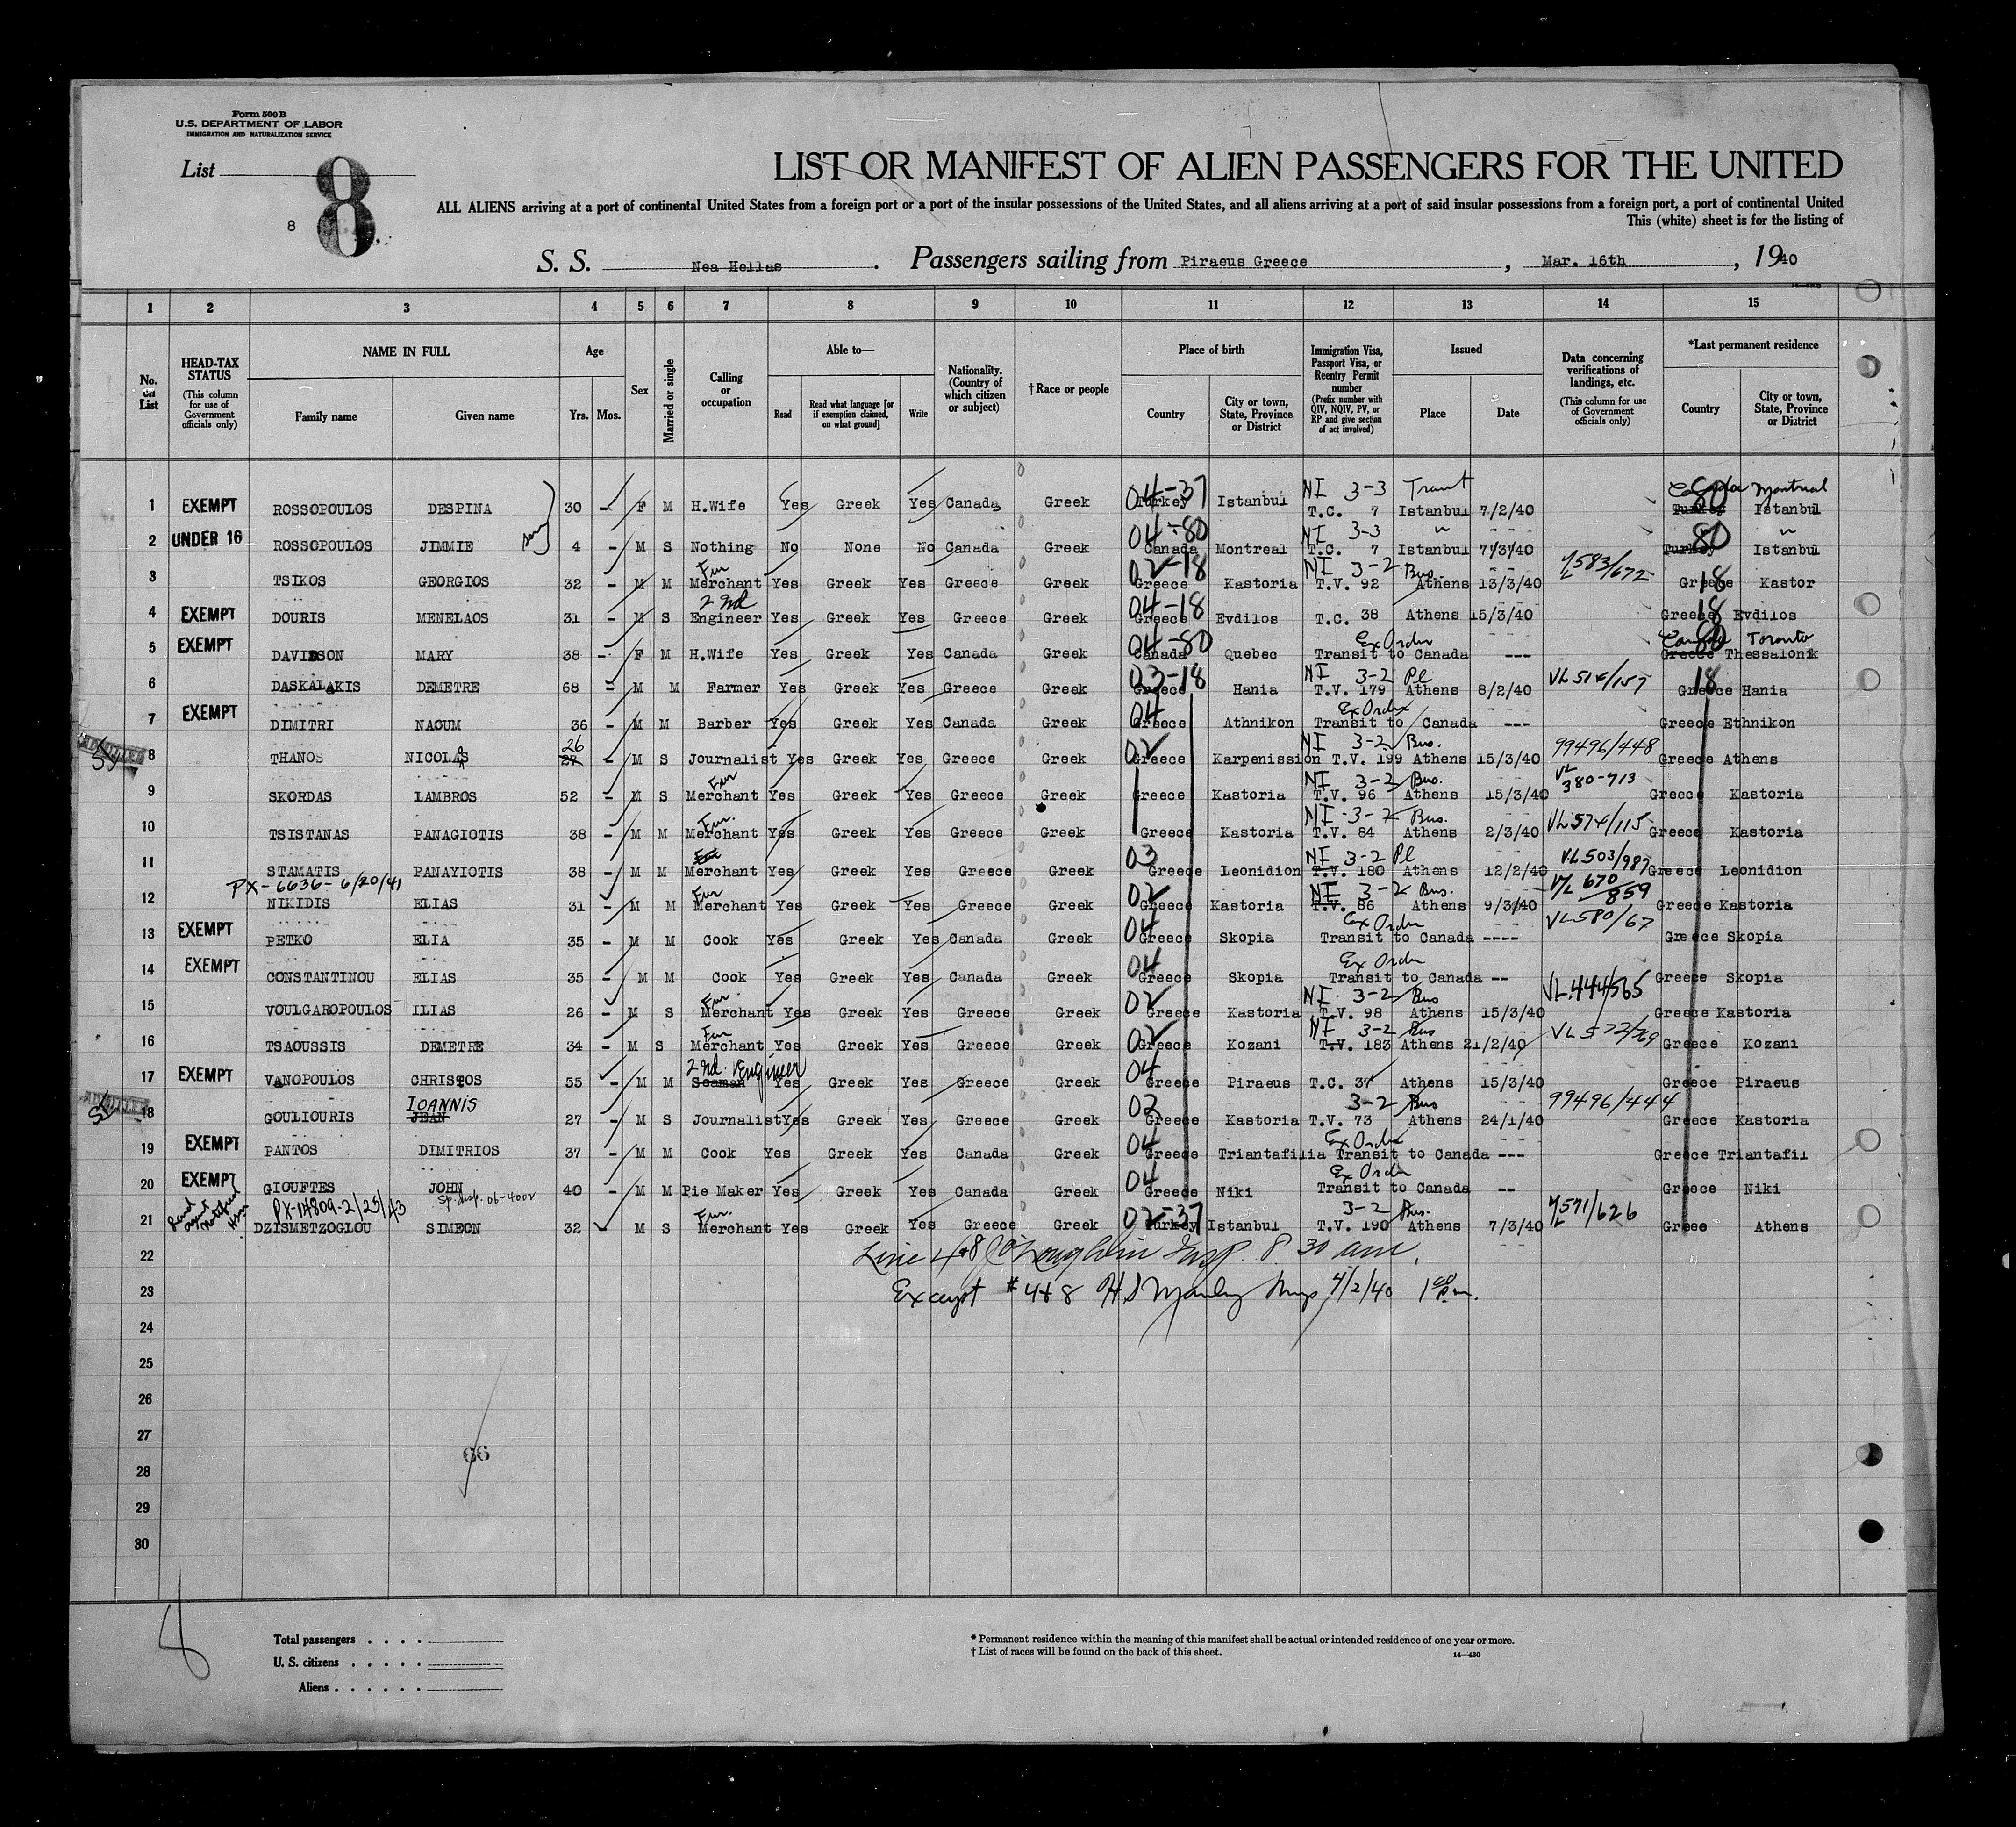 Form 500 B
U.S. DEPARTMENT OF LABOR
IMMIGRATION AND NATURALIZATION SERVICE
List 8
8
LIST OR MANIFEST OF ALIEN PASSENGERS FOR THE UNITED
ALL ALIENS arriving at a port of continental United States from a foreign port or a port of the insular possessions of the United States, and all aliens arriving at a port of said insular possessions from a foreign port, a port of continental United
This (white) sheet is for the listing of
S. S. Nea Hellas. Passengers sailing from Piraeus Greece, Mar. 16th, 1940
1 2 3 4 5 6 7 8 9 10 11 12 13 14 15
No. on List
HEAD-TAX STATUS (This column for use of Government officials only)
NAME IN FULL Family name Given name
Age Yrs. Mos.
Sex
Married or single
Calling or occupation
Able to— Read Read what language [or if exemption claimed, on what ground] Write
Nationality. (Country of which citizen or subject)
†Race or people
Place of birth Country City or town, State, Province or District
Immigration Visa, Passport Visa, or Reentry Permit number (Prefix number with QIV, NQIV, PV, or RP and give section of act involved)
Issued Place Date
Data concerning verifications of landings, etc. (This column for use of Government officials only)
*Last permanent residence Country City or town, State, Province or District
NI 3-3 Transit Canada Montreal
1 EXEMPT ROSSOPOULOS DESPINA 30 - F M H.Wife Yes Greek Yes Canada Greek 04-37 Turkey Istanbul T.C. 7 Istanbul 7/2/40 80 Turkey Istanbul
NI 3-3 "
2 UNDER 16 ROSSOPOULOS JIMMIE 4 - M S Nothing No None No Canada Greek 04-80 Canada Montreal T.C. 7 Istanbul 7/3/40 80 Turkey Istanbul
Fur NI 3-2 Bus
3 TSIKOS GEORGIOS 32 - M M Merchant Yes Greek Yes Greece Greek 02-18 Greece Kastoria T.V. 92 Athens 13/3/40 583/672 18 Greece Kastor
2nd
4 EXEMPT DOURIS MENELAOS 31 - M S Engineer Yes Greek Yes Greece Greek 04-18 Greece Evdilos T.C. 38 Athens 15/3/40 18 Greece Evdilos
Ex Order Canada Toronto
5 EXEMPT DAVIDSON MARY 38 - F M H.Wife Yes Greek Yes Canada Greek 04-80 Canada Quebec Transit to Canada --- 80 Greece Thessalonik
NI 3-2 Pl
6 DASKALAKIS DEMETRE 68 - M M Farmer Yes Greek Yes Greece Greek 03-18 Greece Hania T.V. 179 Athens 8/2/40 VL 514/157 18 Greece Hania
Ex Order
7 EXEMPT DIMITRI NAOUM 36 - M M Barber Yes Greek Yes Canada Greek 04 Greece Athnikon Transit to Canada --- Greece Ethnikon
26 NI 3-2 Bus.
ADMITTED 8 THANOS NICOLAS 27 - M S Journalist Yes Greek Yes Greece Greek 02 Greece Karpenission T.V. 199 Athens 15/3/40 99496/448 Greece Athens
Fur NI 3-2 Bus.
9 SKORDAS LAMBROS 52 - M S Merchant Yes Greek Yes Greece Greek Greece Kastoria T.V. 96 Athens 15/3/40 VL 380-713 Greece Kastoria
Fur. NI 3-2 Bus.
10 TSISTANAS PANAGIOTIS 38 - M M Merchant Yes Greek Yes Greece Greek Greece Kastoria T.V. 84 Athens 2/3/40 VL 574/115 Greece Kastoria
Fur NI 3-2 Pl
11 STAMATIS PANAYIOTIS 38 - M M Merchant Yes Greek Yes Greece Greek 03 Greece Leonidion T.V. 180 Athens 12/2/40 VL 503/987 Greece Leonidion
PX-6636-6/20/41 Fur NI 3-2 Bus.
12 NIKIDIS ELIAS 31 - M M Merchant Yes Greek Yes Greece Greek 02 Greece Kastoria T.V. 86 Athens 9/3/40 V/L 670/859 Greece Kastoria
Ex Order
13 EXEMPT PETKO ELIA 35 - M M Cook Yes Greek Yes Canada Greek 04 Greece Skopia Transit to Canada ---- VL 580/67 Greece Skopia
Ex Order
14 EXEMPT CONSTANTINOU ELIAS 35 - M M Cook Yes Greek Yes Canada Greek 04 Greece Skopia Transit to Canada -- Greece Skopia
Fur. NI 3-2 Bus
15 VOULGAROPOULOS ILIAS 26 - M S Merchant Yes Greek Yes Greece Greek 02 Greece Kastoria T.V. 98 Athens 15/3/40 VL 444/565 Greece Kastoria
Fur NI 3-2 Bus
16 TSAOUSSIS DEMETRE 34 - M S Merchant Yes Greek Yes Greece Greek 02 Greece Kozani T.V. 183 Athens 21/2/40 Greece Kozani
2nd. Engineer
17 EXEMPT VANOPOULOS CHRISTOS 55 - M M Seaman Yes Greek Yes Greece Greek 04 Greece Piraeus T.C. 37 Athens 15/3/40 Greece Piraeus
IOANNIS 3-2 Bus
ADMITTED 18 GOULIOURIS JEAN 27 - M S Journalist Yes Greek Yes Greece Greek 02 Greece Kastoria T.V. 73 Athens 24/1/40 99496/444 Greece Kastoria
Ex Order
19 EXEMPT PANTOS DIMITRIOS 37 - M M Cook Yes Greek Yes Canada Greek 04 Greece Triantafilia Transit to Canada --- Greece Triantafil
Ex Order
20 EXEMPT GIOUFTES JOHN 40 - M M Pie Maker Yes Greek Yes Canada Greek 04 Greece Niki Transit to Canada -- Greece Niki
PX-14809-2/25/43 Fur. 3-2 Bus.
21 DZISMETZOGLOU SIMEON 32 M S Merchant Yes Greek Yes Greece Greek 02-37 Turkey Istanbul T.V. 190 Athens 7/3/40 571/626 Greece Athens
22 Line 4+8 Insp. 8 30 am.
23 Except # 4+8 Insp 4/2/40 1 pm.
24
25
26
27
66
28
29
30
8
Total passengers . . . .
U. S. citizens . . . . .
Aliens . . . . . .
* Permanent residence within the meaning of this manifest shall be actual or intended residence of one year or more.
† List of races will be found on the back of this sheet.
14—430